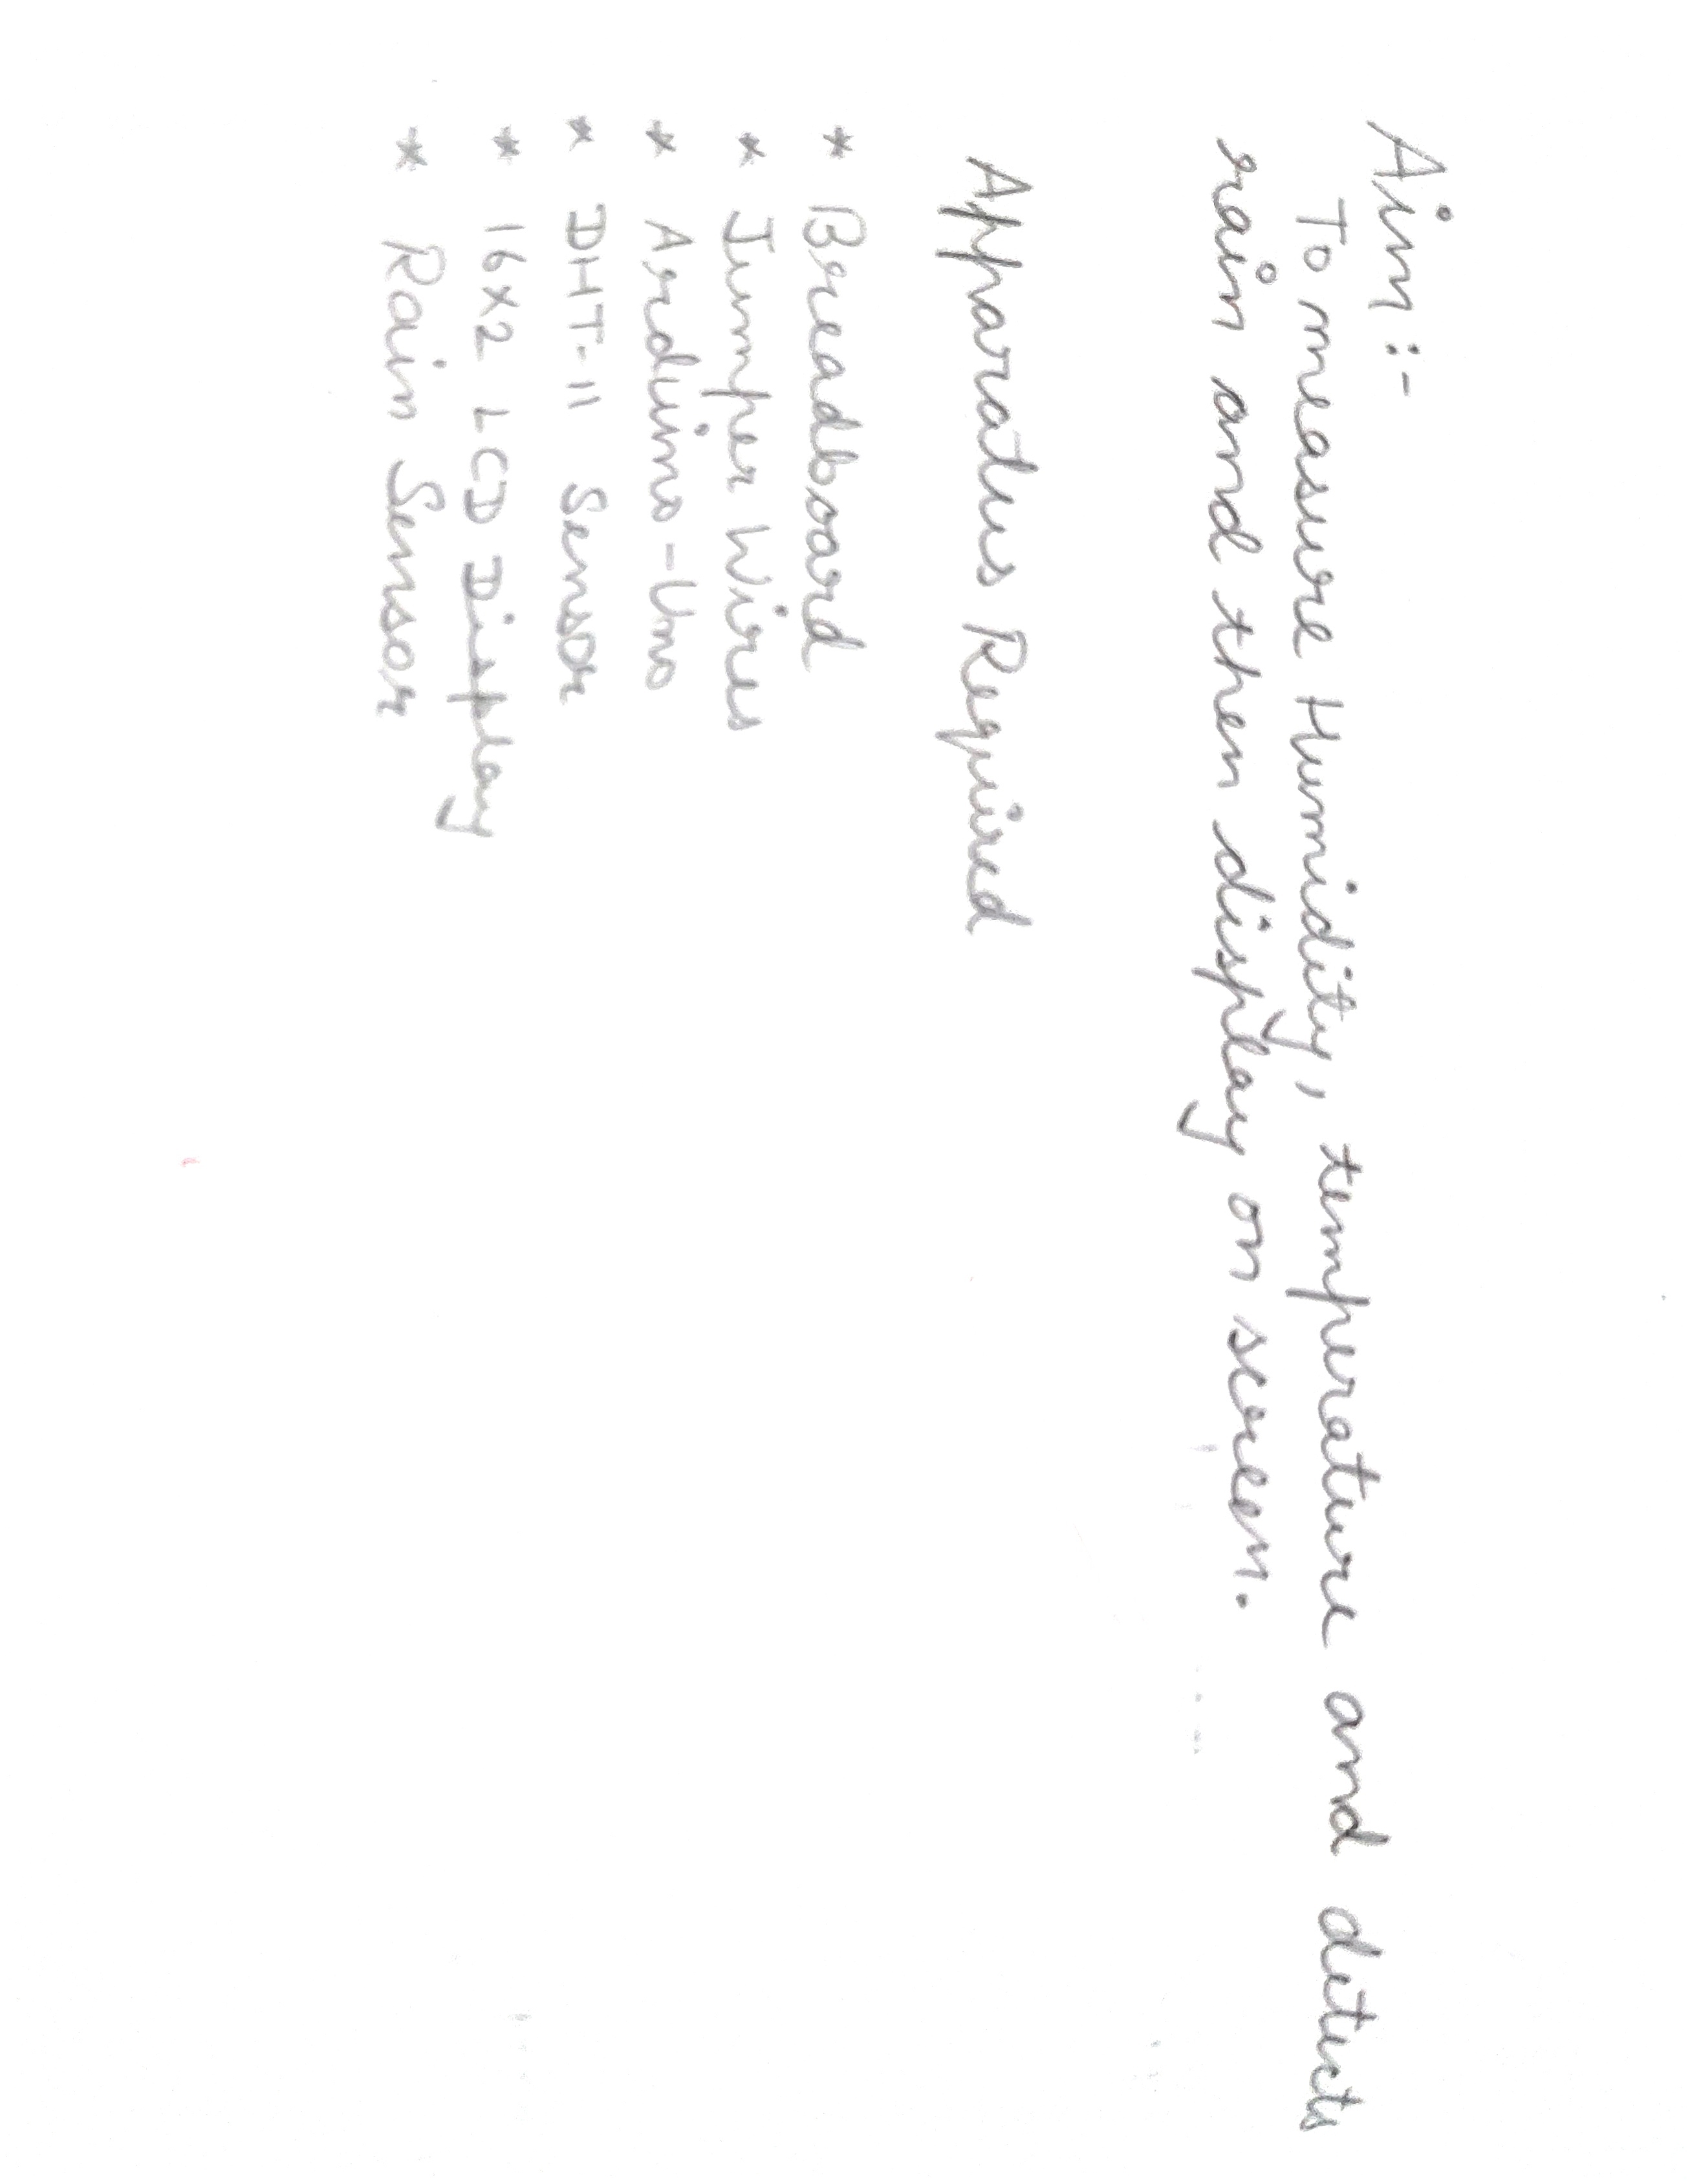 Aim :-
To measure Humidity, temperature and detects
rain and then display on screen.
Apparatus Required
* Breadboard
* Jumper Wires
* Arduino-Uno
* DHT-11 Sensor
* 16X2 LCD Display
* Rain Sensor